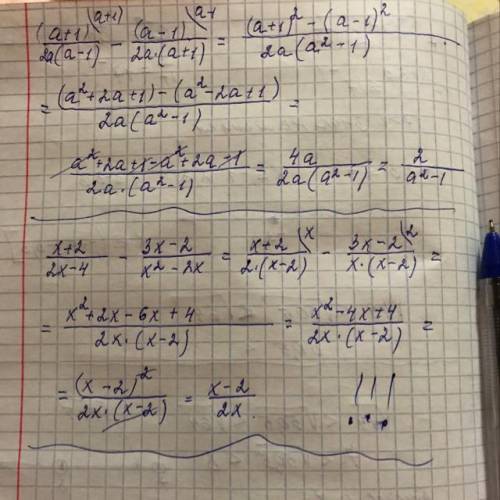 (a+1)\(a+1) / 2a(a-1) - (a-1)\a-1 / 2a·(a+1) = (a+1)² - (a-1)² / 2a(a²-1)
= (a²+2a+1) - (a²-2a+1) / 2a(a²-1) =
a²+2a+1-a²+2a-1 / 2a·(a²-1) = 4a / 2a(a²-1) = 2 / a²-1
x+2 / 2x-4 - 3x-2 / x²-2x = x+2\x / 2·(x-2) - 3x-2\2 / x·(x-2) =
= x²+2x-6x+4 / 2x·(x-2) = x²-4x+4 / 2x·(x-2) =
= (x-2)² / 2x·(x-2) = x-2 / 2x. !!!